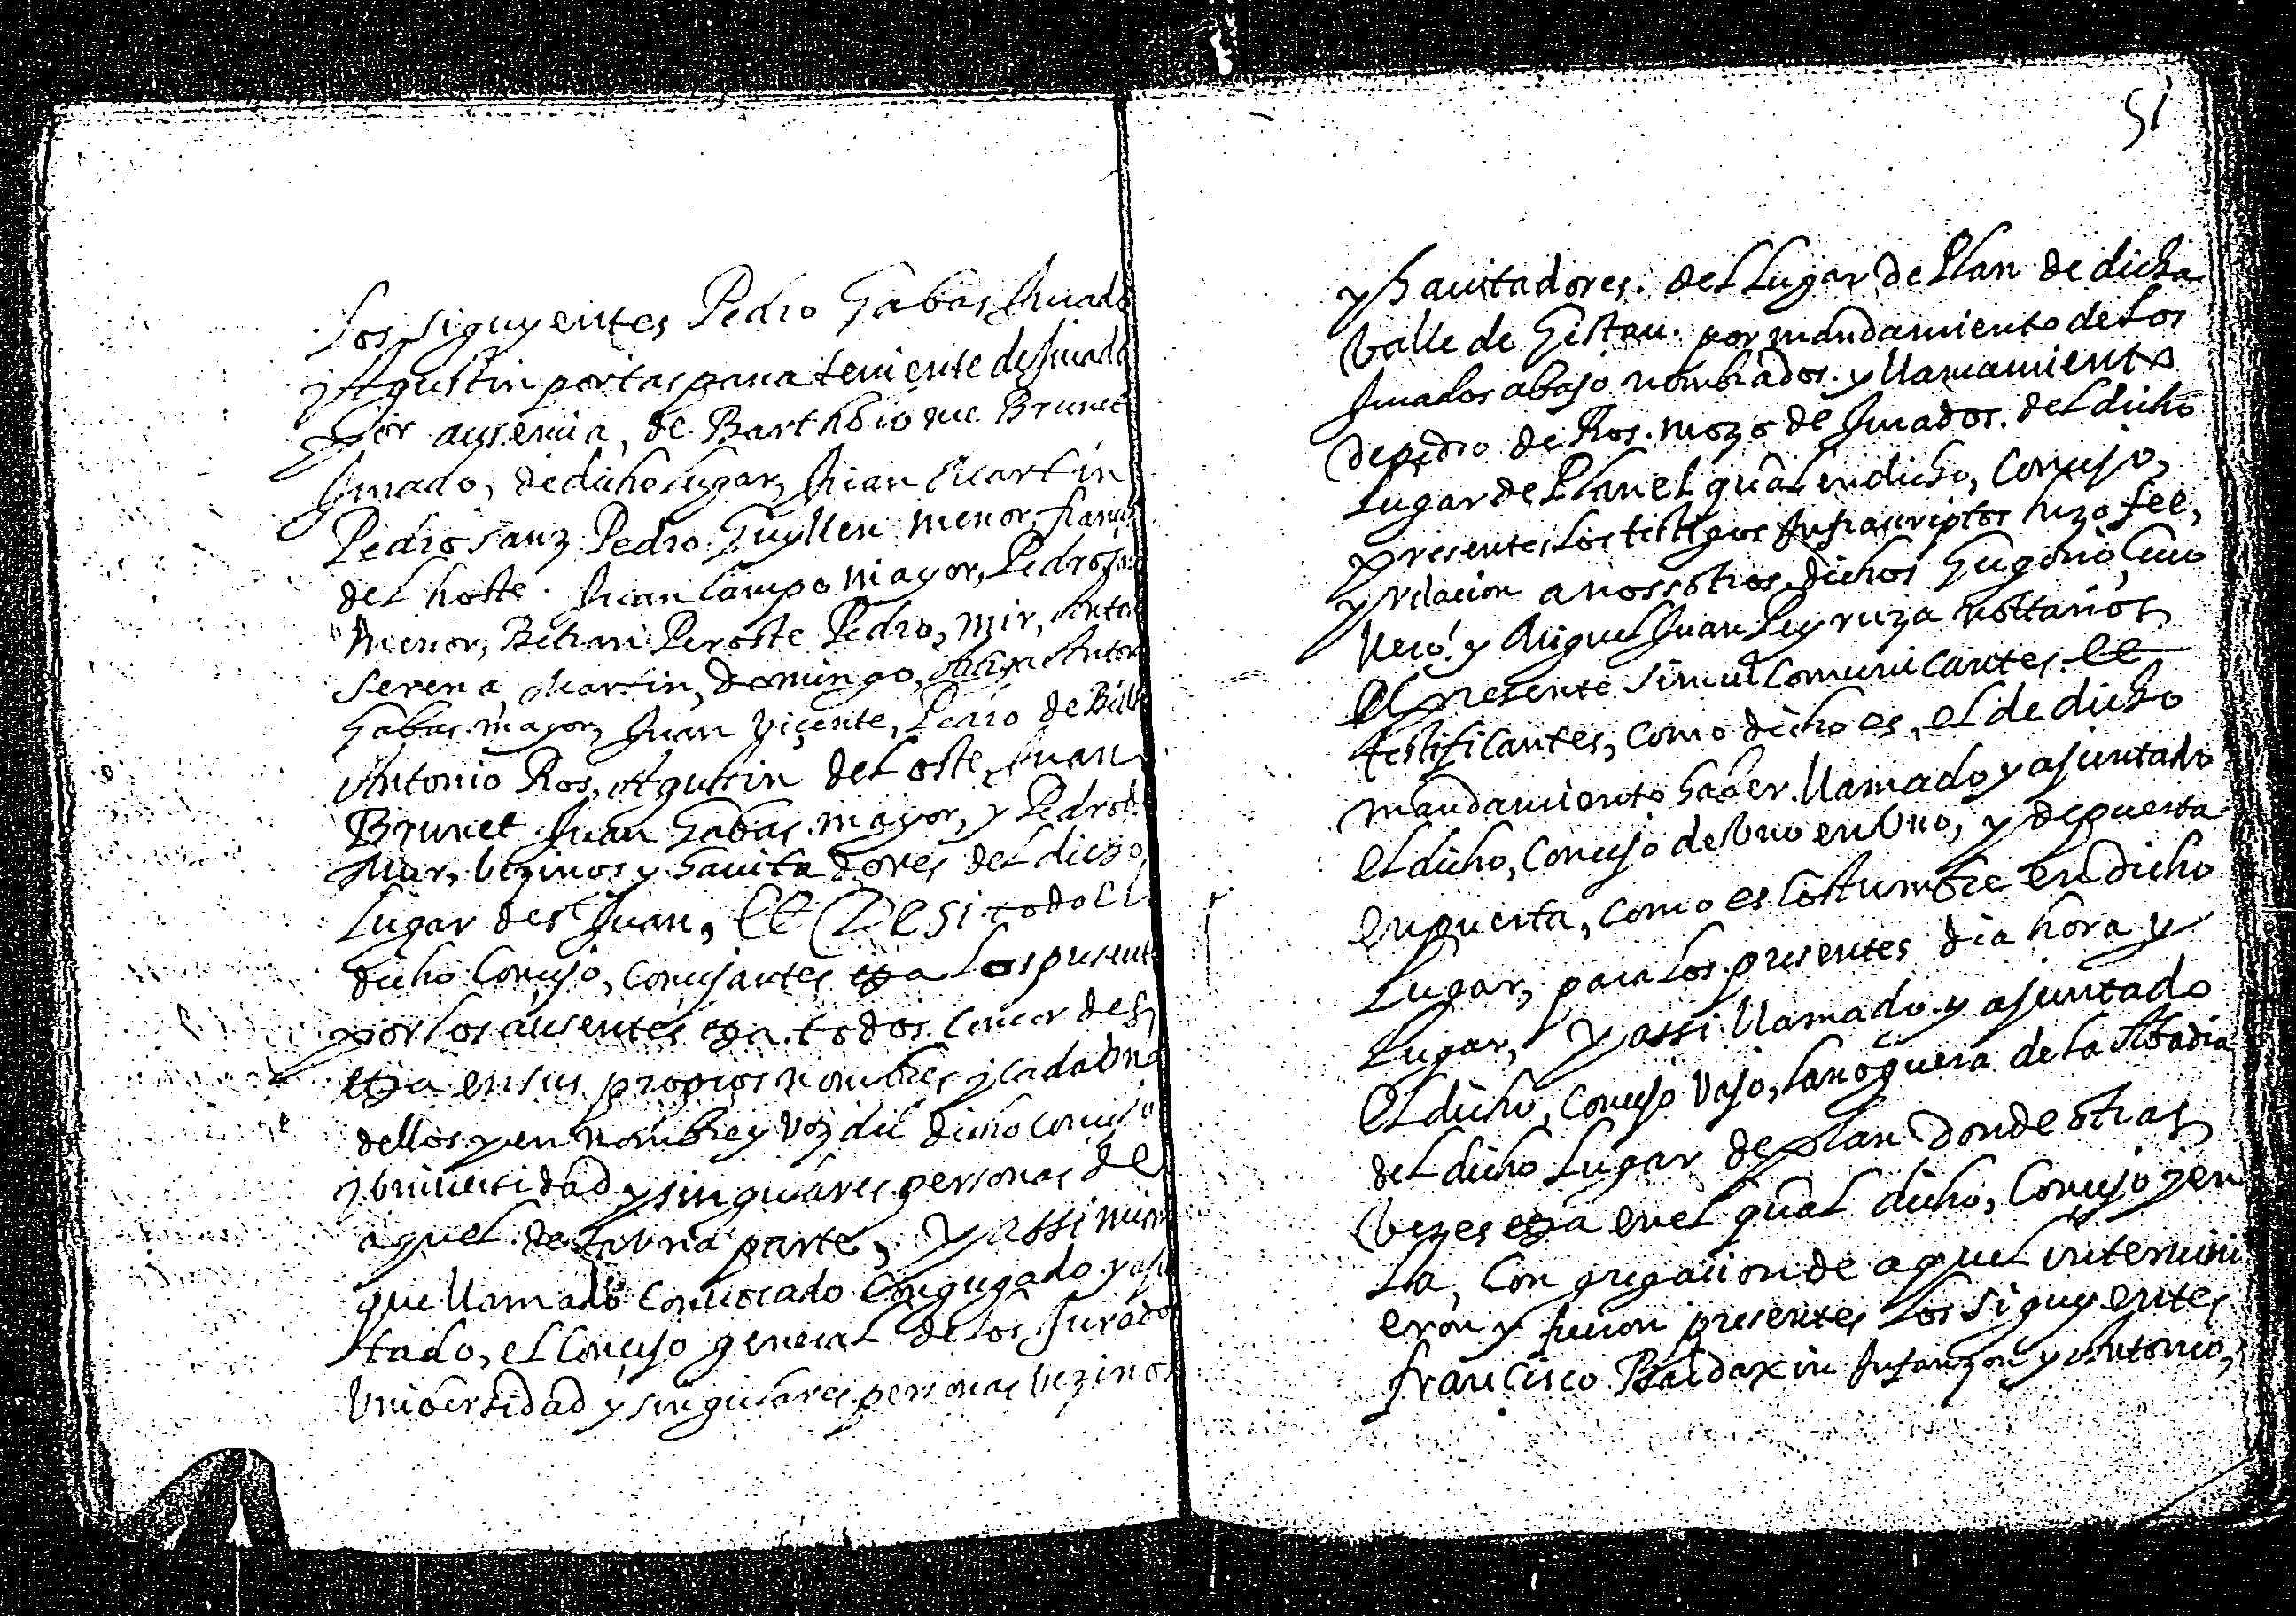 Los siguyentes Pedro Gabas Jurado
y Agustin portaspana teniente de Jurado
por ausencia, de Bartholome Brunet
Jurado, de dicho lugar, Juan Martin
Pedro sanz Pedro Guyllen menor, franc
del hoste. Juan Campo mayor, Pedro
menor, Betran Peroste Pedro, mir, Anton
serena Martin, domingo, Anton
Gabas mayor, Juan viçente, Pedro de
Antonio Ros, Agustin del oste, Juan
Brunet Juan Gabas mayor, y Pedro
Mur, vezinos y havitadores del dicho
Lugar de st Juan, ett De si todo el
dicho Concejo, concejantes etza Los presentes
por los ausentes etza todos concordes
etza en sus propios nombres y cada uno
dellos y en nombre y voz del dicho concejo
y universidad y singulares personas de
aquel de la una parte, Y assi mismo
que llamado convocado congregado y aju
tado, el Concejo general de los Jurados
Universidad y singulares personas vezinos
51
y havitadores. del Lugar de Plan de dicha
Valle de Gistau. por mandamiento de Los
Jurados abajo nombrados. y llamamiento
de pedro de Ros. mozo de Jurados. del dicho
Lugar de Plan el qual en dicho, Concejo,
presentes los testigos Infrascriptos hizo fee,
y relacion a nossotros dichos
y Miguel Juan notarios
el presente simul Comunicantes ett
testificantes, como dicho es, el de dicho
mandamiento haber llamado y ajuntado
el dicho, Concejo de Uno en Uno, y de puerta
en puerta, como es Costumbre en dicho
Lugar, para los presentes dia hora y
Lugar, Y assi llamado y ajuntado
el dicho, Concejo vajo, la noguera de la Abadia
del dicho Lugar de plan donde otras
Vezes etza en el qual dicho, Concejo y en
La, Congregacion de aquel intervini
eron y fueron presentes los siguyentes
françisco Baldaxin Infanzon y Antonio,